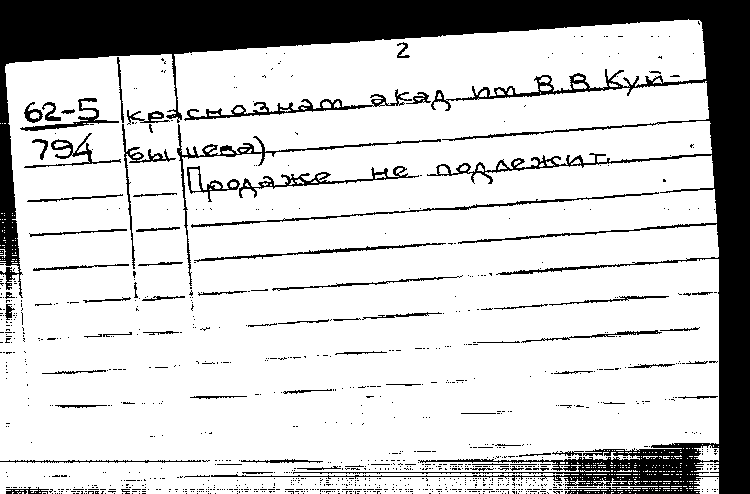 2
62-5 краснознам акад им В.В Куй-
794 бышева).
Продаже не подлежит.